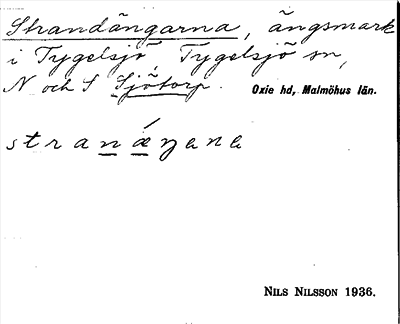 Strandängarna, ängsmark
i Tygelsjö, Tygelsjö sn,
N och S Sjötorp. Oxie hd, Malmöhus län.
stranæŋana
NILS NILSSON 1936.